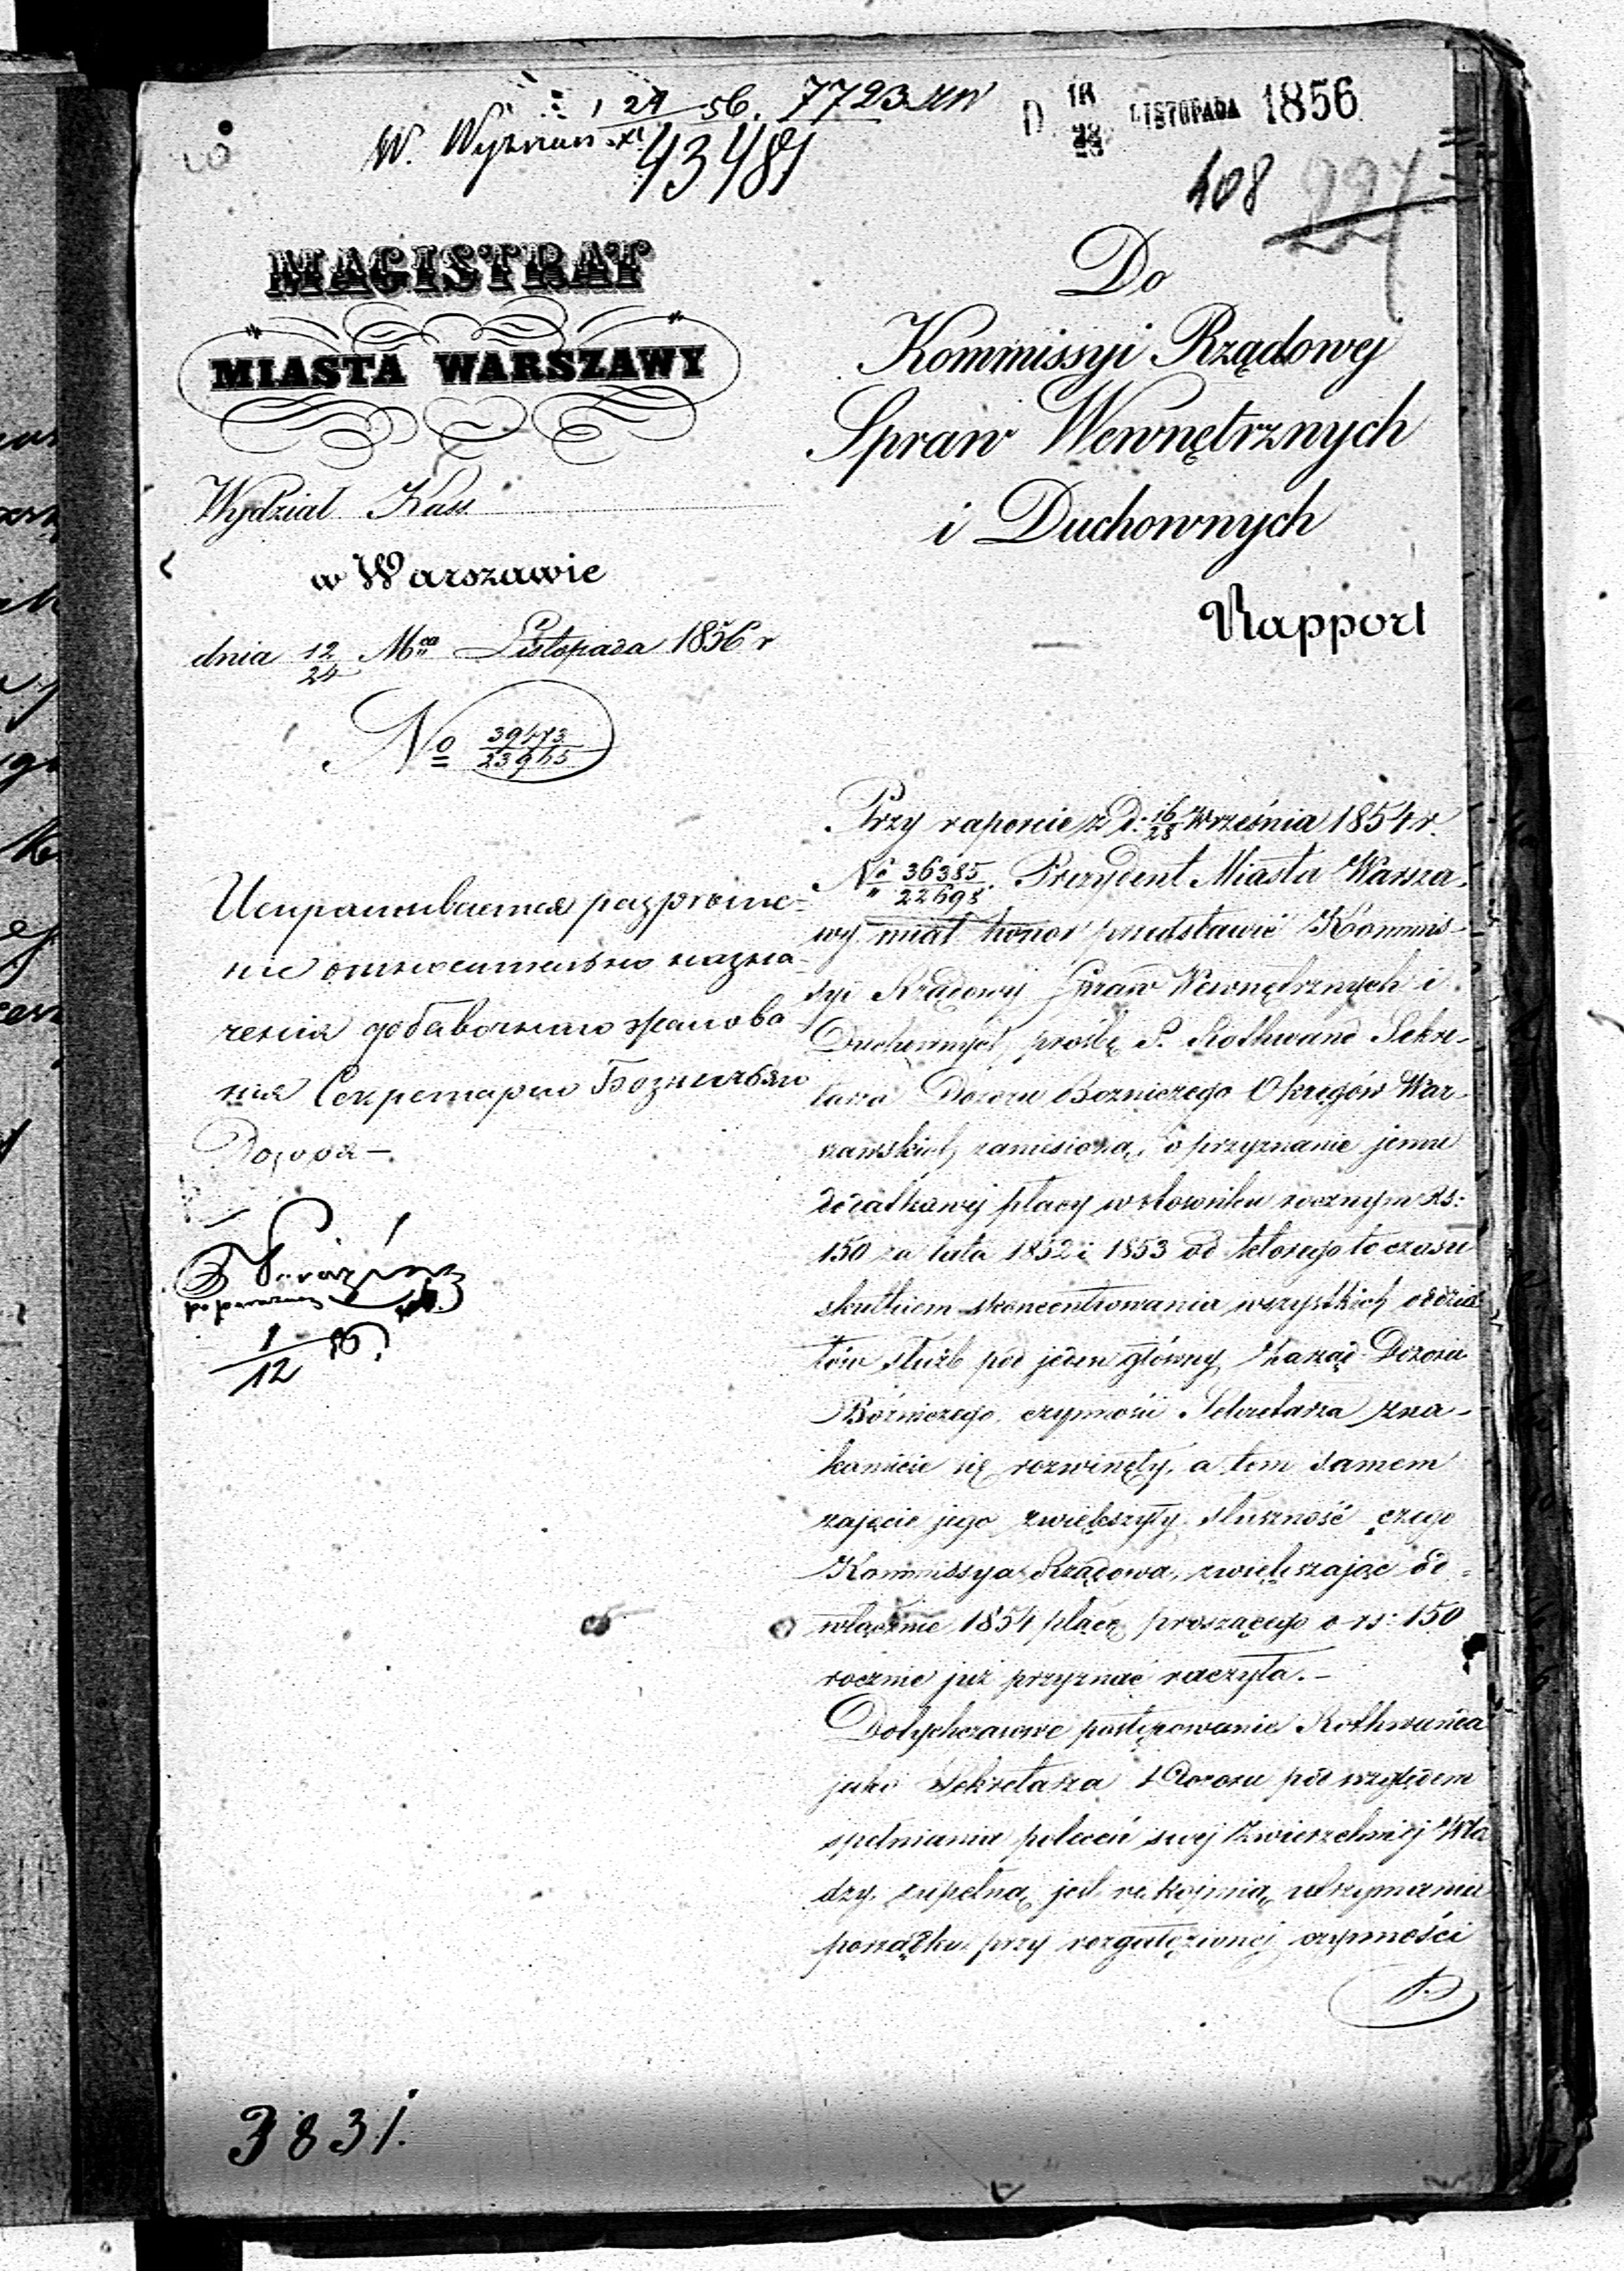 W. Wyznań XI 24 56. 7723
43481
D 16 28 LISTOPADA 1856
108
227
MAGISTRAT
MIASTA WARSZAWY
Wydział Kass
w Warszawie
dnia 12/24 Mca Listopada 1856 r
No 39473/23965
Испрашивается разреше-
ние относительно назна-
чения добавочнаго жалова
ния Секретарю Божничьяго
Дозора —
1/12 56
3831.
Do
Kommissyi Rządowej
Spraw Wewnętrznych
i Duchownych
Rapport
Przy raporcie z d: 16/28 Września 1854 r.
No 36385/22698. Prezydent Miasta Warsza-
wy miał honor przedstawić Kommis-
syi Rządowej Spraw Wewnętrznych i
Duchownych, prośbę P. Rothwand Sekre-
tarza Dozoru Bożniczego Okręgów War-
szawskich, zaniesioną, o przyznanie jemu
dodatkowej płacy w stosunku rocznym Rs:
150 za lata 1852 i 1853 od którego to czasu
skutkiem skoncentrowania wszystkich oddzia
łów służb pod jeden główny Zarząd Dozoru
Bóżniczego, czynności Sekretarza zna-
komicie się rozwinęły, a tem samem
zajęcie jego zwiększyły, słuszność czego
Kommissya Rządowa, zwiększając od
włącznie 1854 płacę proszącego o rs: 150
rocznie już przyznać raczyła. —
Dotychczasowe postępowanie Rothwanda
jako Sekretarza Dozoru pod względem
spełniania poleceń swej Zwierzchniej Wła
dzy, zupełną jest rękojmią utrzymania
porządku przy rozgałęzionej czynności